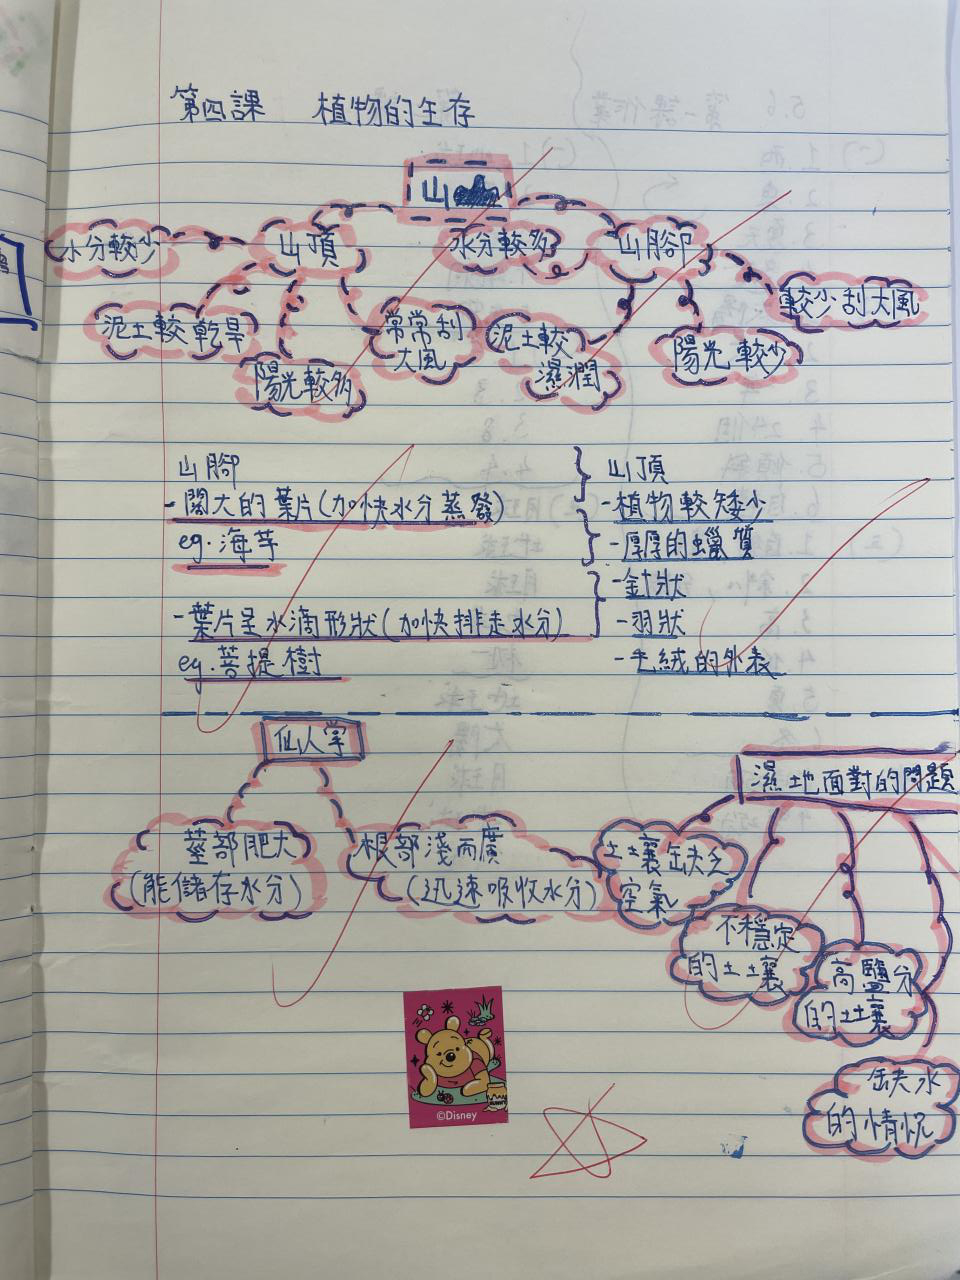 第四課 植物的生存
山
水分較少 山頂 水分較多 山腳
泥土較乾旱 常常刮大風 泥土較濕潤 較少刮大風
陽光較多 陽光較少
山腳 山頂
-闊大的葉片(加快水分蒸發) -植物較矮少
eg.海芋 -厚厚的蠟質
-針狀
-葉片呈水滴形狀(加快排走水分) -羽狀
eg.菩提樹 -毛絨的外表
仙人掌
濕地面對的問題
莖部肥大 根部淺而廣 土壤缺乏
(能儲存水分) (迅速吸收水分) 空氣
不穩定
的土壤
高鹽分
的土壤
缺水
的情況
©Disney